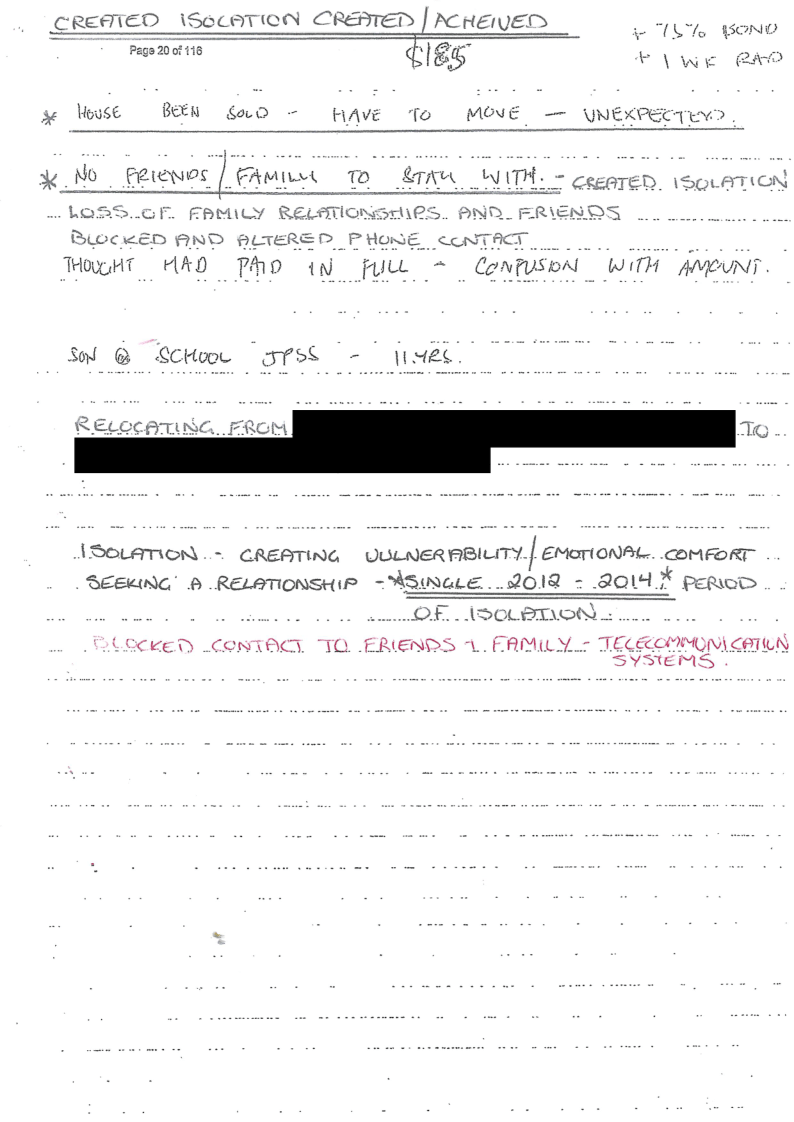 CREATED ISOLATION CREATED/ACHEIVED
+ 75% BOND
Page 20 of 116
$185
+ 1 WK RAD
* HOUSE BEEN SOLD - HAVE TO MOVE - UNEXPECTEYD.
* NO FRIENDS/FAMILY TO STAY WITH. - CREATED ISOLATION
LOSS OF FAMILY RELATIONSHIPS AND FRIENDS
BLOCKED AND ALTERED PHONE CONTACT
THOUGHT HAD PAID IN FULL - CONFUSION WITH AMOUNT.
SON @ SCHOOL JPSS - 11.YRS.
RELOCATING FROM TO
ISOLATION - CREATING VULNERABILITY/EMOTIONAL COMFORT
SEEKING A RELATIONSHIP - *SINGLE 2012 - 2014.* PERIOD
OF ISOLATION.
BLOCKED CONTACT TO FRIENDS & FAMILY - TELECOMMUNICATION
SYSTEMS.